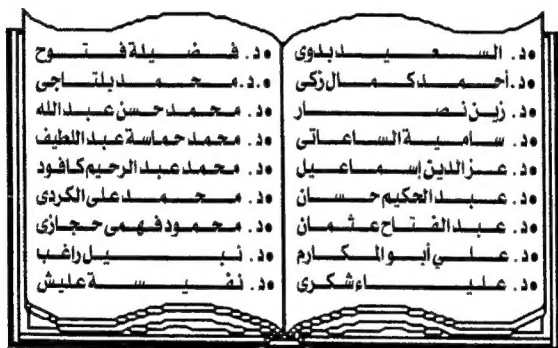 د. السعيد بدوى
د. أحمد كمال زكى
د. زين نصار
د. سامية الساعاتى
د. عز الدين إسماعيل
د. عبد الحكيم حسان
د. عبد الفتاح عثمان
د. على أبو المكارم
د. علياء شكرى
د. فضيلة فتوح
د. محمد بلتاجى
د. محمد حسن عبدالله
د. محمد حماسة عبداللطيف
د. محمد عبد الرحيم كافود
د. محمد على الكردى
د. محمود فهمى حجازى
د. نبيل راغب
د. نفيسة عليش